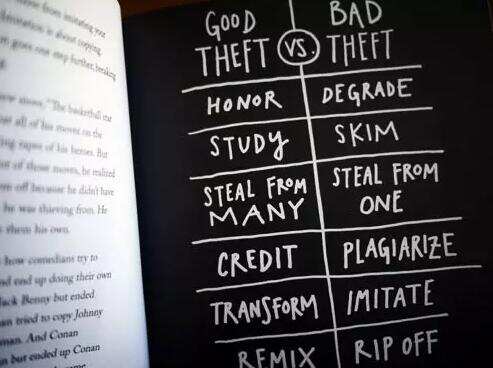 from imitating your
is about copying
goes one step further, breaking
"The basketball star
all of his moves on the
tapes of his heroes. But
of those moves, he realized
off because he didn't have
he was thieving from. He
them his own.
how comedians try to
end up doing their own
Jack Benny but ended
tried to copy Johnny
And Conan
but ended up Conan
GOOD THEFT VS. BAD THEFT
HONOR DEGRADE
STUDY SKIM
STEAL FROM MANY STEAL FROM ONE
CREDIT PLAGIARIZE
TRANSFORM IMITATE
REMIX RIP OFF